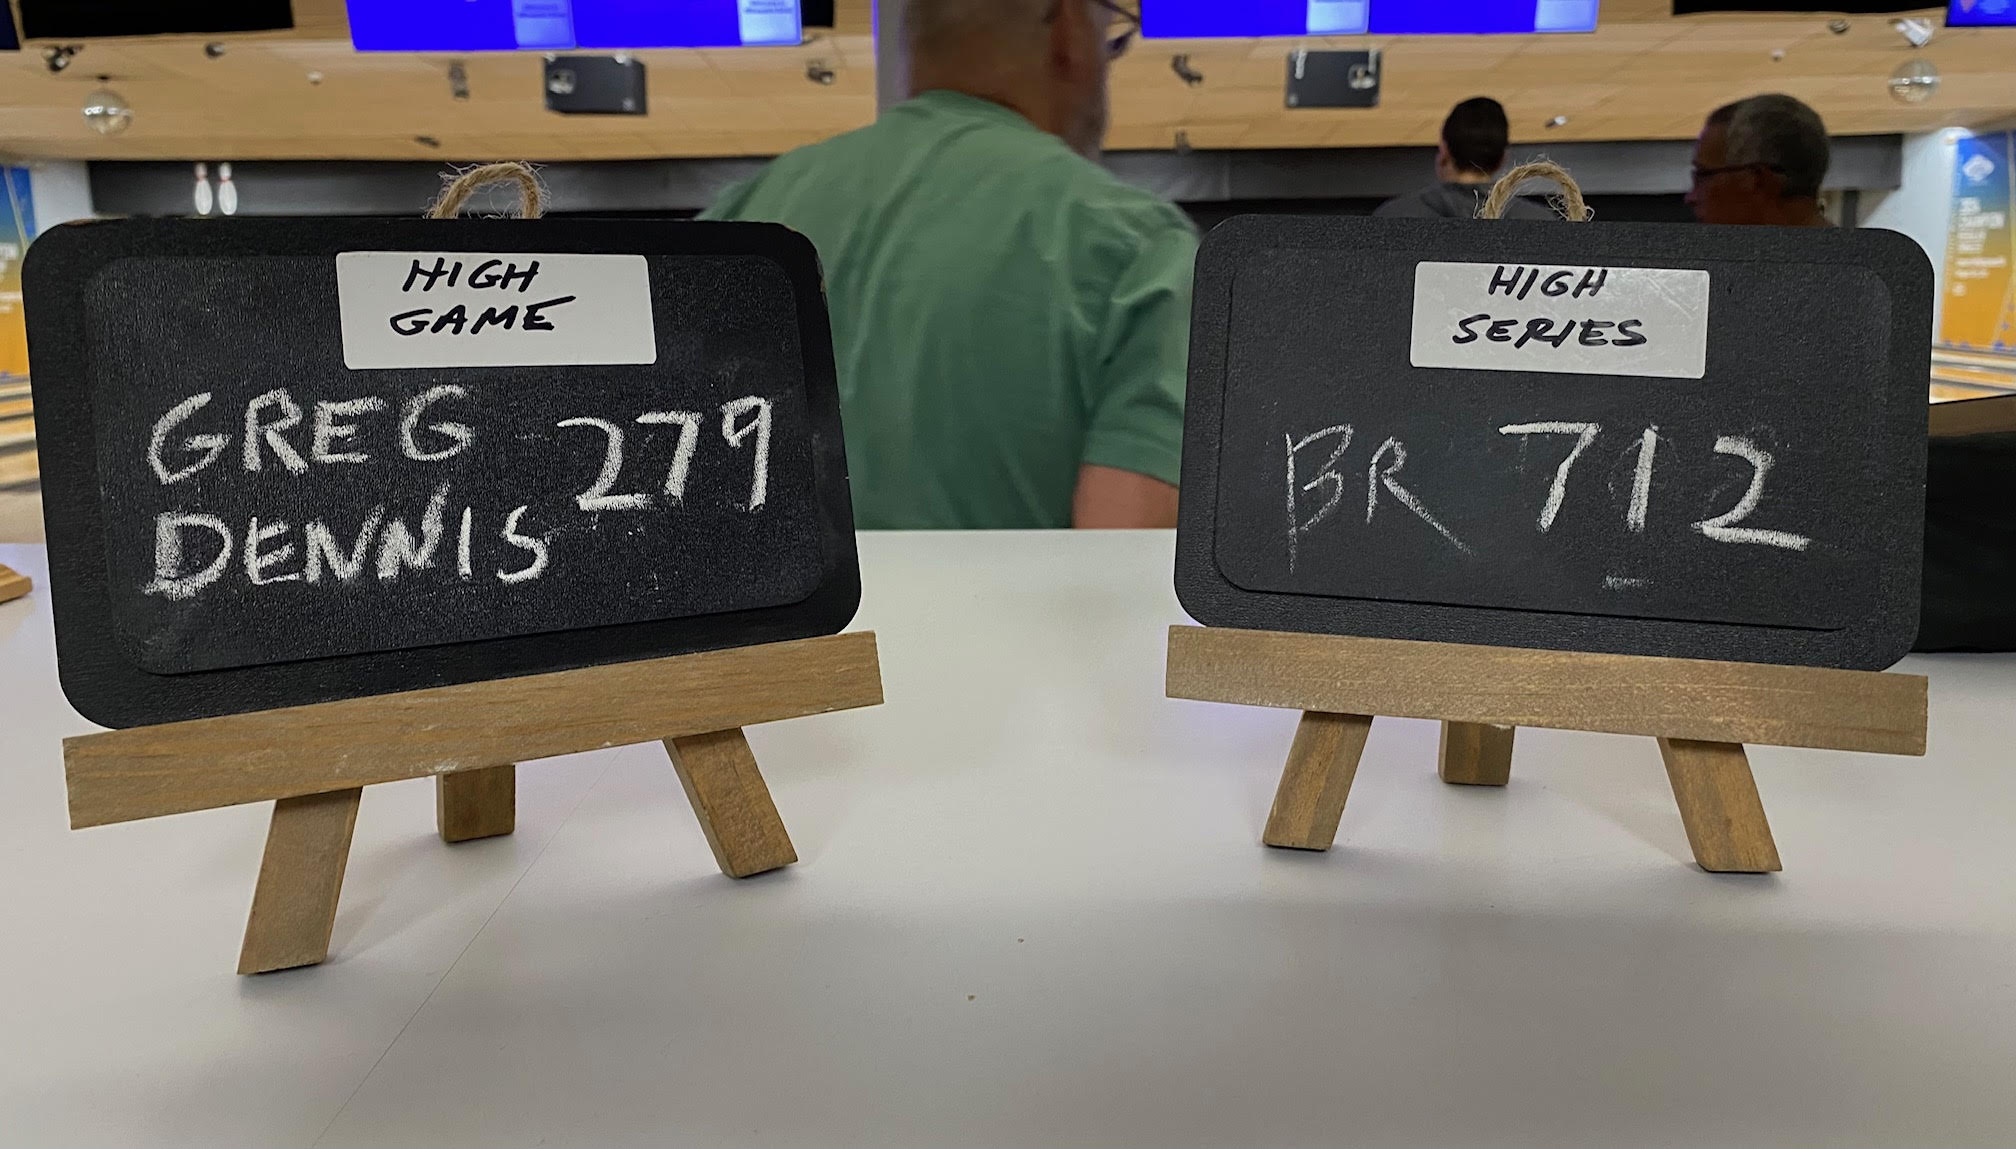 HIGH
GAME
GREG
DENNIS 279
HIGH
SERIES
BR 712